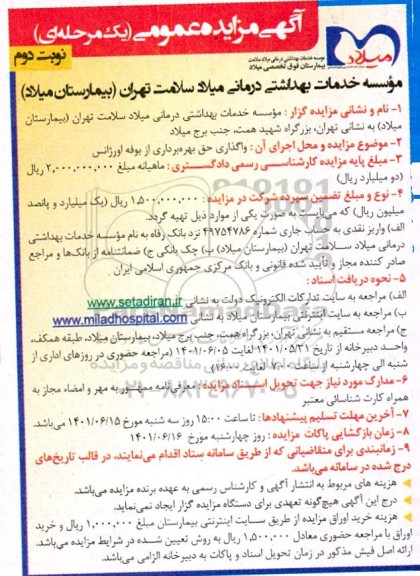 آگهی مزایده عمومی (یک مرحله‌ای)
نوبت دوم
میلاد
موسسه خدمات بهداشتی درمانی میلاد سلامت
بیمارستان فوق تخصصی میلاد
مؤسسه خدمات بهداشتی درمانی میلاد سلامت تهران (بیمارستان میلاد)
۱- نام و نشانی مزایده گزار : مؤسسه خدمات بهداشتی درمانی میلاد سلامت تهران (بیمارستان
میلاد) به نشانی تهران، بزرگراه شهید همت، جنب برج میلاد
۲- موضوع مزایده و محل اجرای آن: واگذاری حق بهره‌برداری از بوفه اورژانس
۳- مبلغ پایه مزایده کارشناسی رسمی دادگستری : ماهیانه مبلغ ۲,۰۰۰,۰۰۰,۰۰۰ ریال
(دو میلیارد ریال)
۴- نوع و مبلغ تضمین سپرده شرکت در مزایده : ۱,۵۰۰,۰۰۰,۰۰۰ ریال (یک میلیارد و پانصد
میلیون ریال) که می‌بایست به صورت یکی از موارد ذیل تهیه گردد.
الف) واریز نقدی به حساب جاری شماره ۴۹۷۵۴۷۸۶ نزد بانک رفاه به نام مؤسسه خدمات بهداشتی
درمانی میلاد سلامت تهران (بیمارستان میلاد) ب) چک بانکی ج) ضمانتنامه از بانک‌ها و مراجع
صادر کننده مجاز و تأیید شده قانونی و بانک مرکزی جمهوری اسلامی ایران
۵- نحوه دریافت اسناد :
الف) مراجعه به سایت تدارکات الکترونیک دولت به نشانی www.setadiran.ir
ب) مراجعه به سایت اینترنتی بیمارستان میلاد به نشانی www.miladhospital.com
ج) مراجعه مستقیم به نشانی تهران، بزرگراه همت، جنب برج میلاد، بیمارستان میلاد، طبقه همکف،
واحد دبیرخانه از تاریخ ۱۴۰۱/۰۵/۳۱ لغایت ۱۴۰۱/۰۶/۰۵ (مراجعه حضوری در روزهای اداری از
شنبه الی چهارشنبه از ساعت ۰۷:۰۰ لغایت ۱۶:۰۰)
۶- مدارک مورد نیاز جهت تحویل اسناد مزایده : معرفی‌نامه ممهور به مهر و امضاء مجاز به
همراه کارت شناسائی معتبر
۷- آخرین مهلت تسلیم پیشنهادها : تا ساعت ۱۵:۰۰ روز سه شنبه مورخ ۱۴۰۱/۰۶/۱۵ می‌باشد.
۸- زمان بازگشایی پاکات مزایده : روز چهارشنبه مورخ ۱۴۰۱/۰۶/۱۶
۹- زمانبندی برای متقاضیانی که از طریق سامانه ستاد اقدام می‌نمایند، در قالب تاریخ‌های
درج شده در سامانه می‌باشد.
هزینه های مربوط به انتشار آگهی و کارشناس رسمی به عهده برنده مزایده می‌باشد.
درج این آگهی هیچ‌گونه تعهدی برای دستگاه مزایده گزار ایجاد نمی‌نماید.
هزینه خرید اوراق مزایده از طریق سایت اینترنتی بیمارستان مبلغ ۱,۰۰۰,۰۰۰ ریال و خرید
اوراق با مراجعه حضوری معادل ۱,۵۰۰,۰۰۰ ریال به روش تعیین شده در شرایط مزایده می‌باشد.
ارائه اصل فیش مذکور در زمان تحویل اسناد و پاکات به دبیرخانه الزامی می‌باشد.